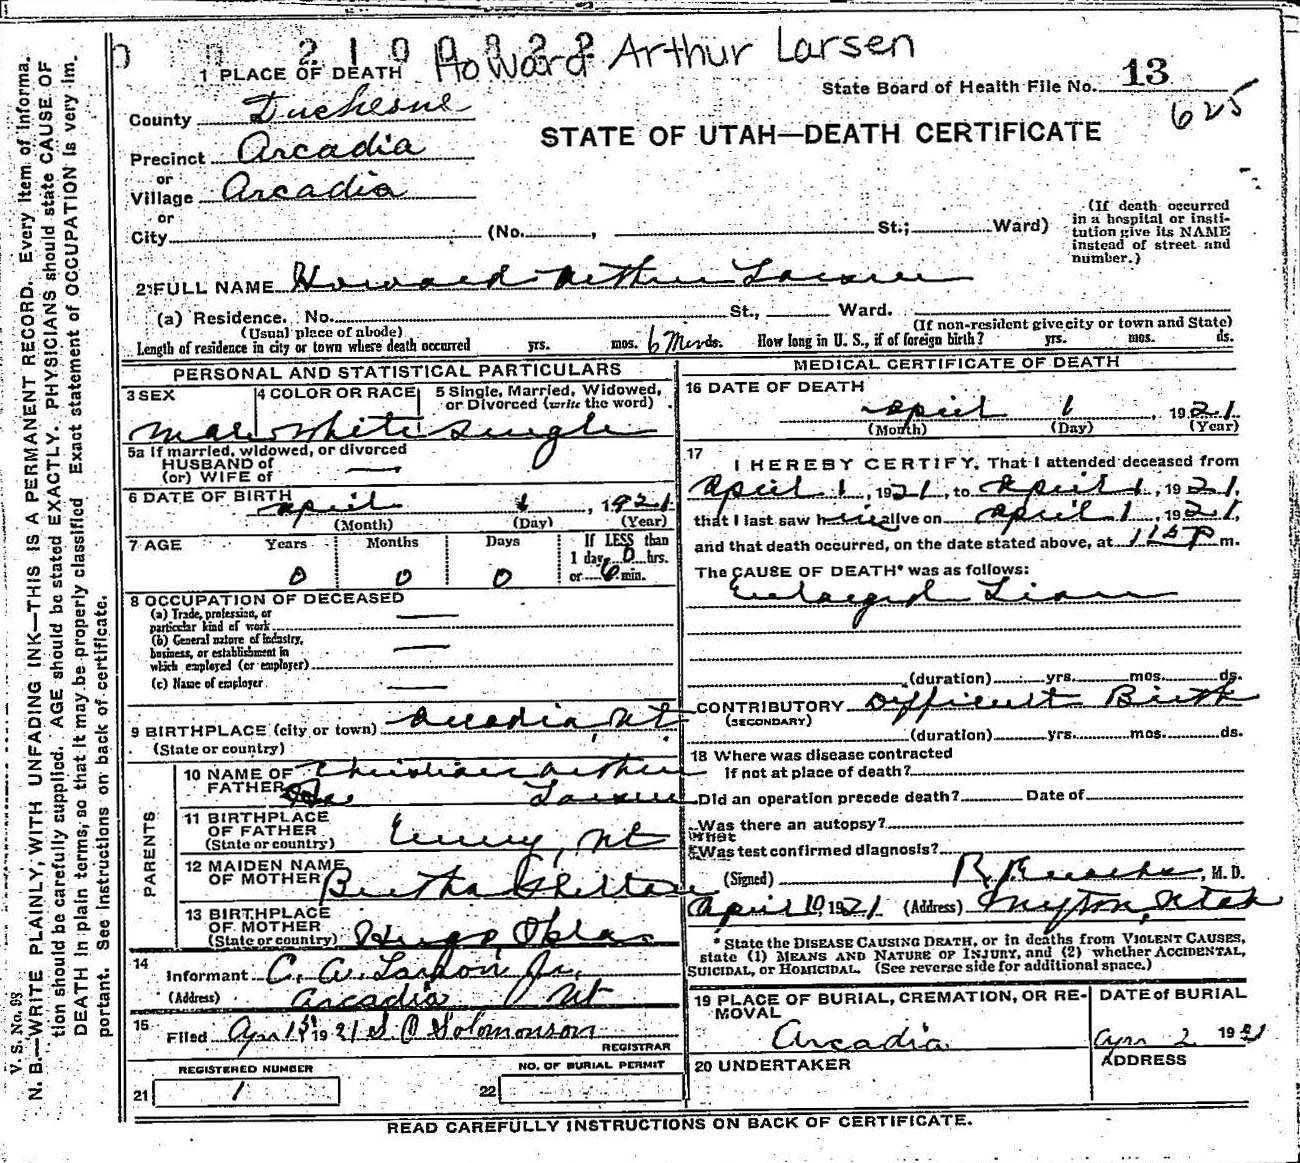 210022 Howard Arthur Larsen
1 PLACE OF DEATH
State Board of Health File No. 13
625
County Duchesne
STATE OF UTAH—DEATH CERTIFICATE
Precinct Arcadia
or
Village Arcadia
or
City (No. , St.; Ward)
(If death occurred
in a hospital or insti-
tution give its NAME
instead of street and
number.)
2 FULL NAME Howard Arthur Larsen
(a) Residence. No. St., Ward.
(Usual place of abode) (If non-resident give city or town and State)
Length of residence in city or town where death occurred yrs. mos. 6 Min ds. How long in U. S., if of foreign birth? yrs. mos. ds.
PERSONAL AND STATISTICAL PARTICULARS
3 SEX 4 COLOR OR RACE 5 Single, Married, Widowed,
or Divorced (write the word)
Male White Single
5a If married, widowed, or divorced
HUSBAND of
(or) WIFE of —
6 DATE OF BIRTH April 1, 1921
(Month) (Day) (Year)
7 AGE Years Months Days If LESS than
1 day, 0 hrs.
0 0 0 or 6 min.
8 OCCUPATION OF DECEASED
(a) Trade, profession, or
particular kind of work —
(b) General nature of industry,
business, or establishment in
which employed (or employer) —
(c) Name of employer —
9 BIRTHPLACE (city or town) Arcadia, Ut
(State or country)
PARENTS
10 NAME OF
FATHER Christian Arthur
Larsen
11 BIRTHPLACE
OF FATHER
(State or country) Emery, Ut
12 MAIDEN NAME
OF MOTHER Bertha Shelton
13 BIRTHPLACE
OF MOTHER
(State or country) Hugo, Okla.
14
Informant C. A. Larson Jr.
(Address) Arcadia Ut
15
Filed Apr 1st 1921 S. O Solomonson
REGISTRAR
REGISTERED NUMBER NO. OF BURIAL PERMIT
21 1 22
MEDICAL CERTIFICATE OF DEATH
16 DATE OF DEATH
April 1, 1921.
(Month) (Day) (Year)
17
I HEREBY CERTIFY, That I attended deceased from
April 1, 1921, to April 1, 1921,
that I last saw him alive on April 1, 1921,
and that death occurred, on the date stated above, at 115 P m.
The CAUSE OF DEATH* was as follows:
Enlarged Liver
(duration) yrs. mos. ds.
CONTRIBUTORY Difficult Birth
(SECONDARY)
(duration) yrs. mos. ds.
18 Where was disease contracted
If not at place of death?
Did an operation precede death? Date of
Was there an autopsy?
What
Was test confirmed diagnosis?
(Signed) R , M. D.
April 10, 1921 (Address) Myton, Utah
* State the DISEASE CAUSING DEATH, or in deaths from VIOLENT CAUSES,
state (1) MEANS AND NATURE OF INJURY, and (2) whether ACCIDENTAL,
SUICIDAL, or HOMICIDAL. (See reverse side for additional space.)
19 PLACE OF BURIAL, CREMATION, OR RE-
MOVAL
Arcadia
DATE of BURIAL
Apr 2 1921
20 UNDERTAKER ADDRESS
READ CAREFULLY INSTRUCTIONS ON BACK OF CERTIFICATE.
V. S. No. 98
N. B.—WRITE PLAINLY, WITH UNFADING INK—THIS IS A PERMANENT RECORD. Every item of informa-
tion should be carefully supplied. AGE should be stated EXACTLY. PHYSICIANS should state CAUSE OF
DEATH in plain terms, so that it may be properly classified. Exact statement of OCCUPATION is very im-
portant. See instructions on back of certificate.